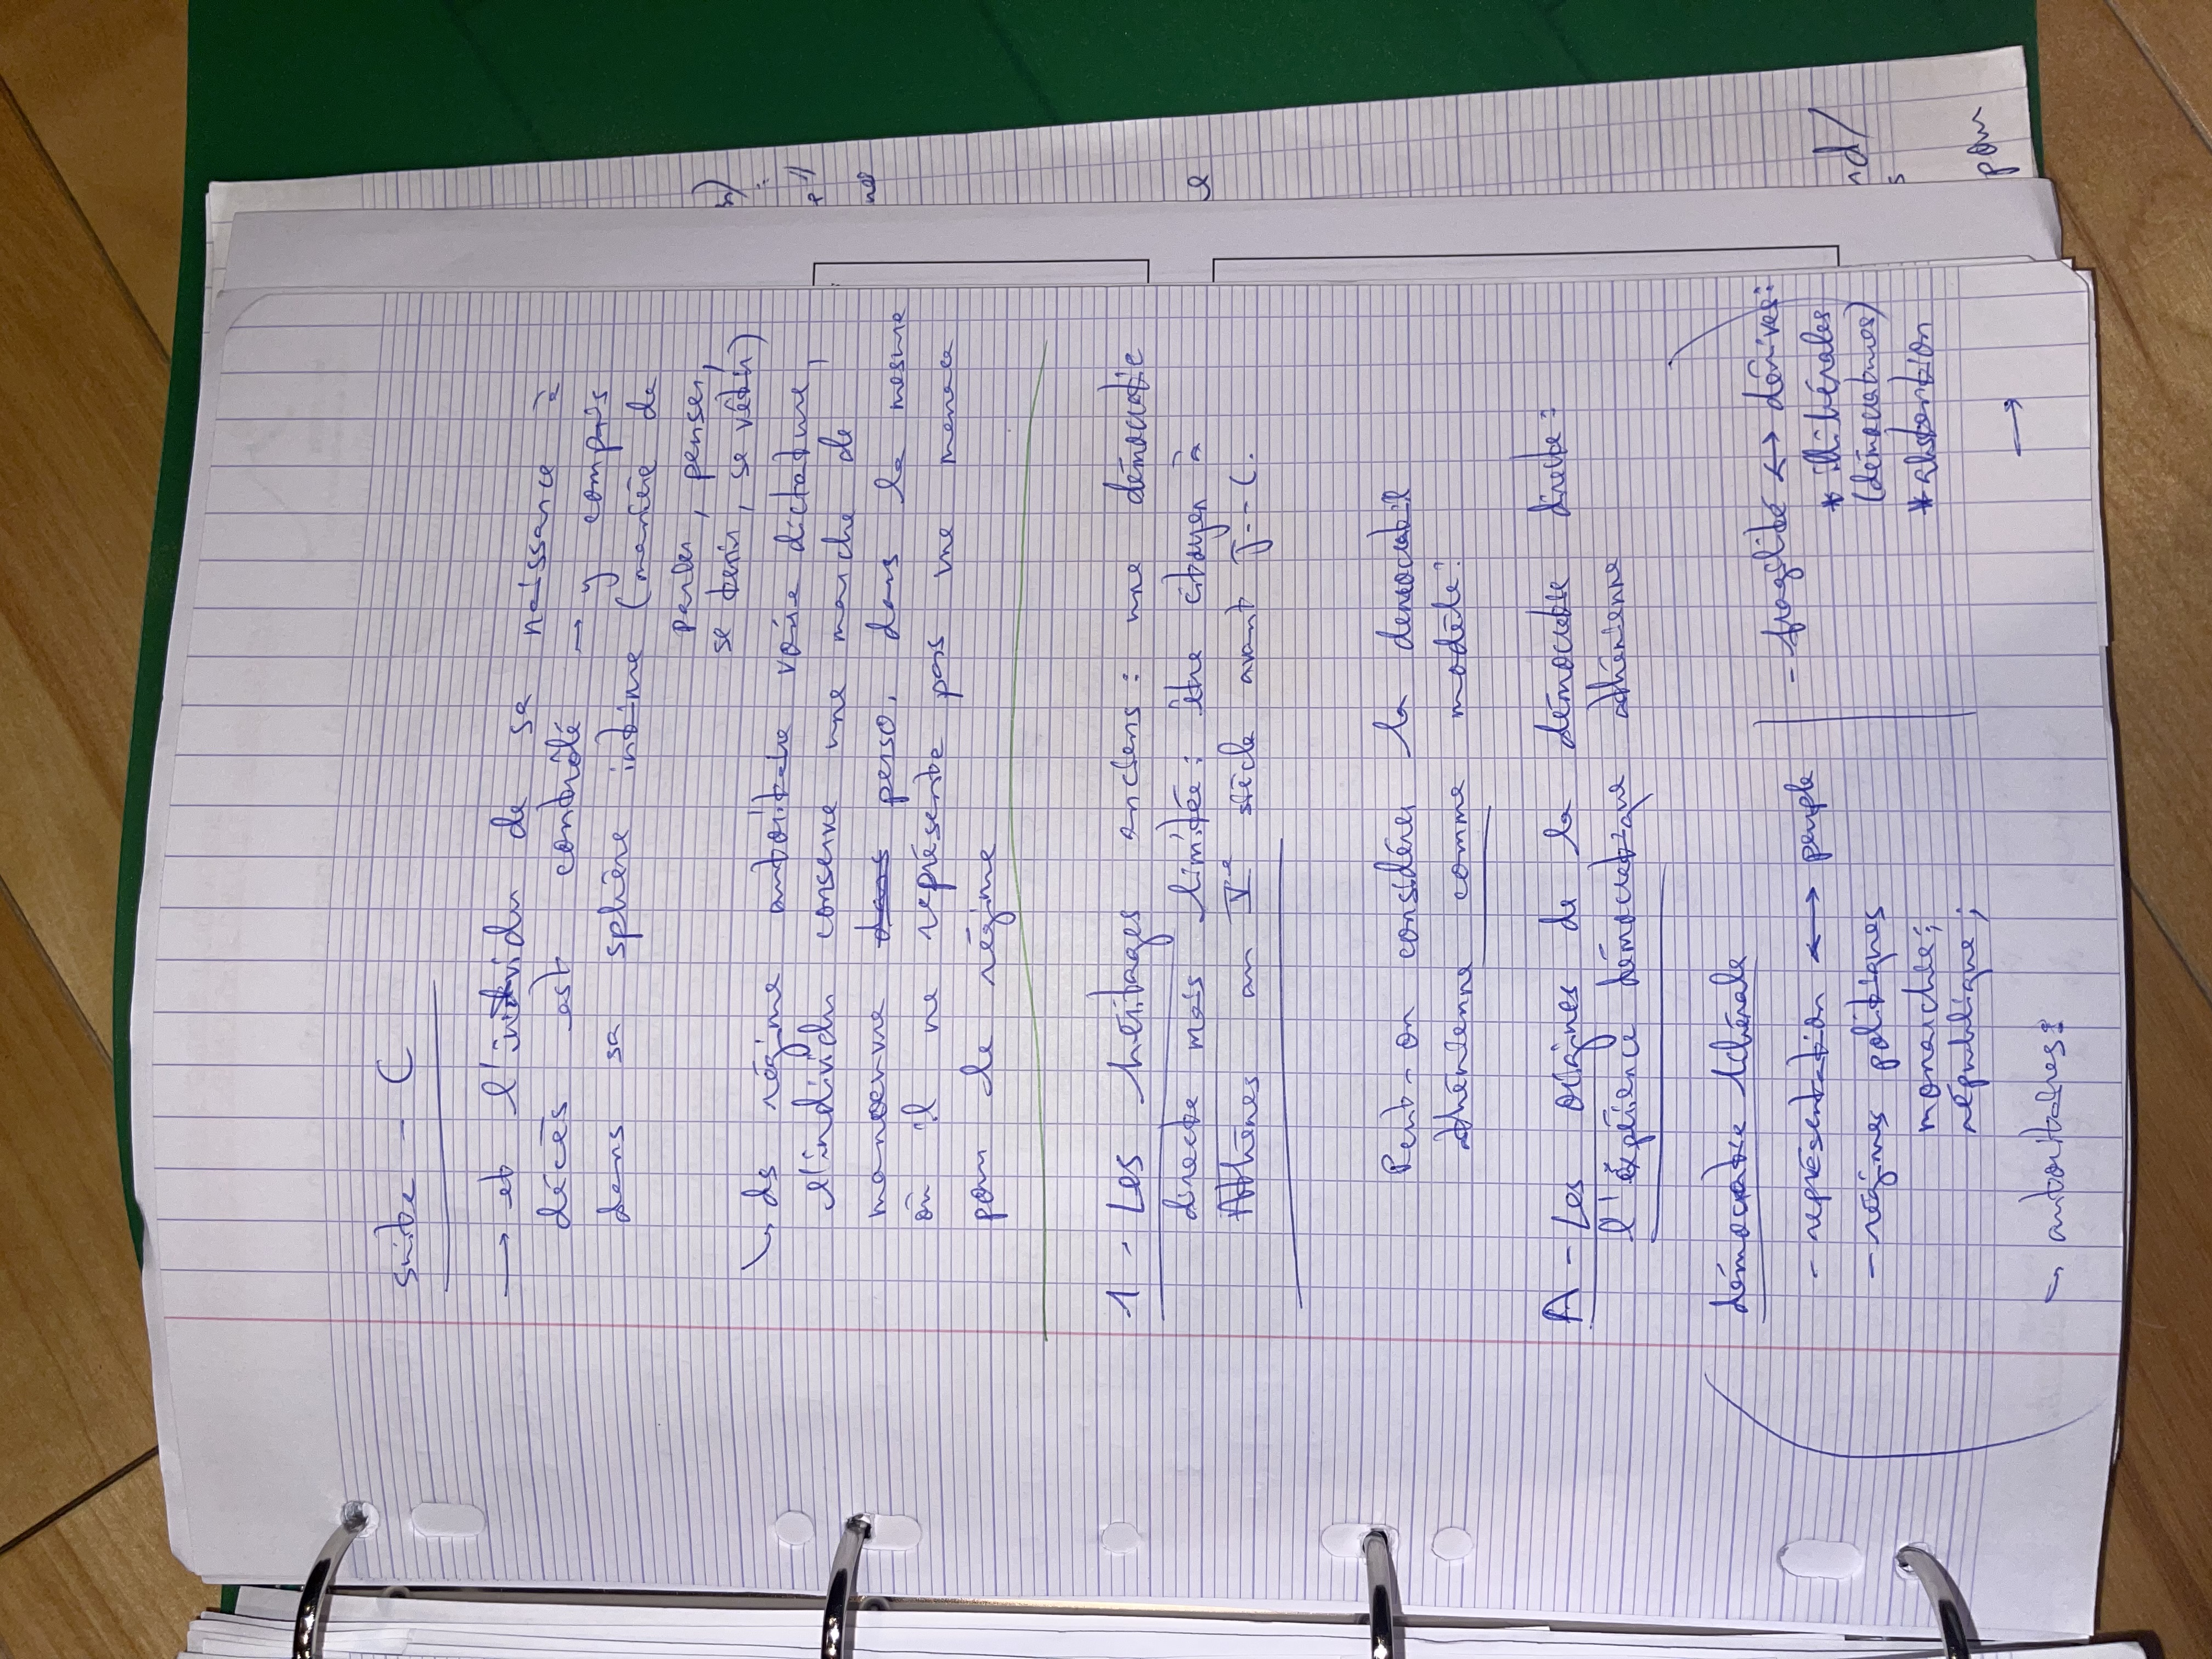 Suite - C
→ et l'individu de sa naissance à
décès est contrôlé → y compris
dans sa sphère intime (manière de
parler, penser,
se tenir, se vêtir)
↳ ds régime autoritaire voire dictature,
l'individu conserve une marche de
manoeuvre dans perso, dans la mesure
où il ne représente pas une menace
pour le régime
1. Les héritages anciens : une démocratie
directe mais limitée : être citoyen à
Athènes au Ve siècle avant J.-C.
Peut-on considérer la démocratie
athénienne comme modèle?
A - Les origines de la démocratie directe :
l'expérience démocratique athénienne
démocratie libérale
- représentation ↔ peuple
- régimes politiques
monarchie ;
république ;
- fragilité ↔ dérives :
* illibérales
(démocratures)
* abstention
→
↳ autoritaires :
n)
e
nd/
s
pour